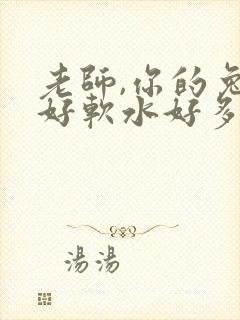 老師,你的兔
好軟水好多
湯湯